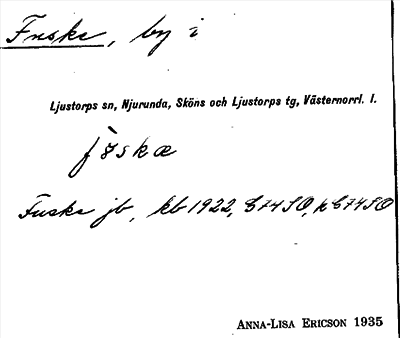 Fuske, by i
Ljustorps sn, Njurunda, Sköns och Ljustorps tg, Västernorrl. l.
Fuske jb, kb 1922,
ANNA-LISA ERICSON 1935